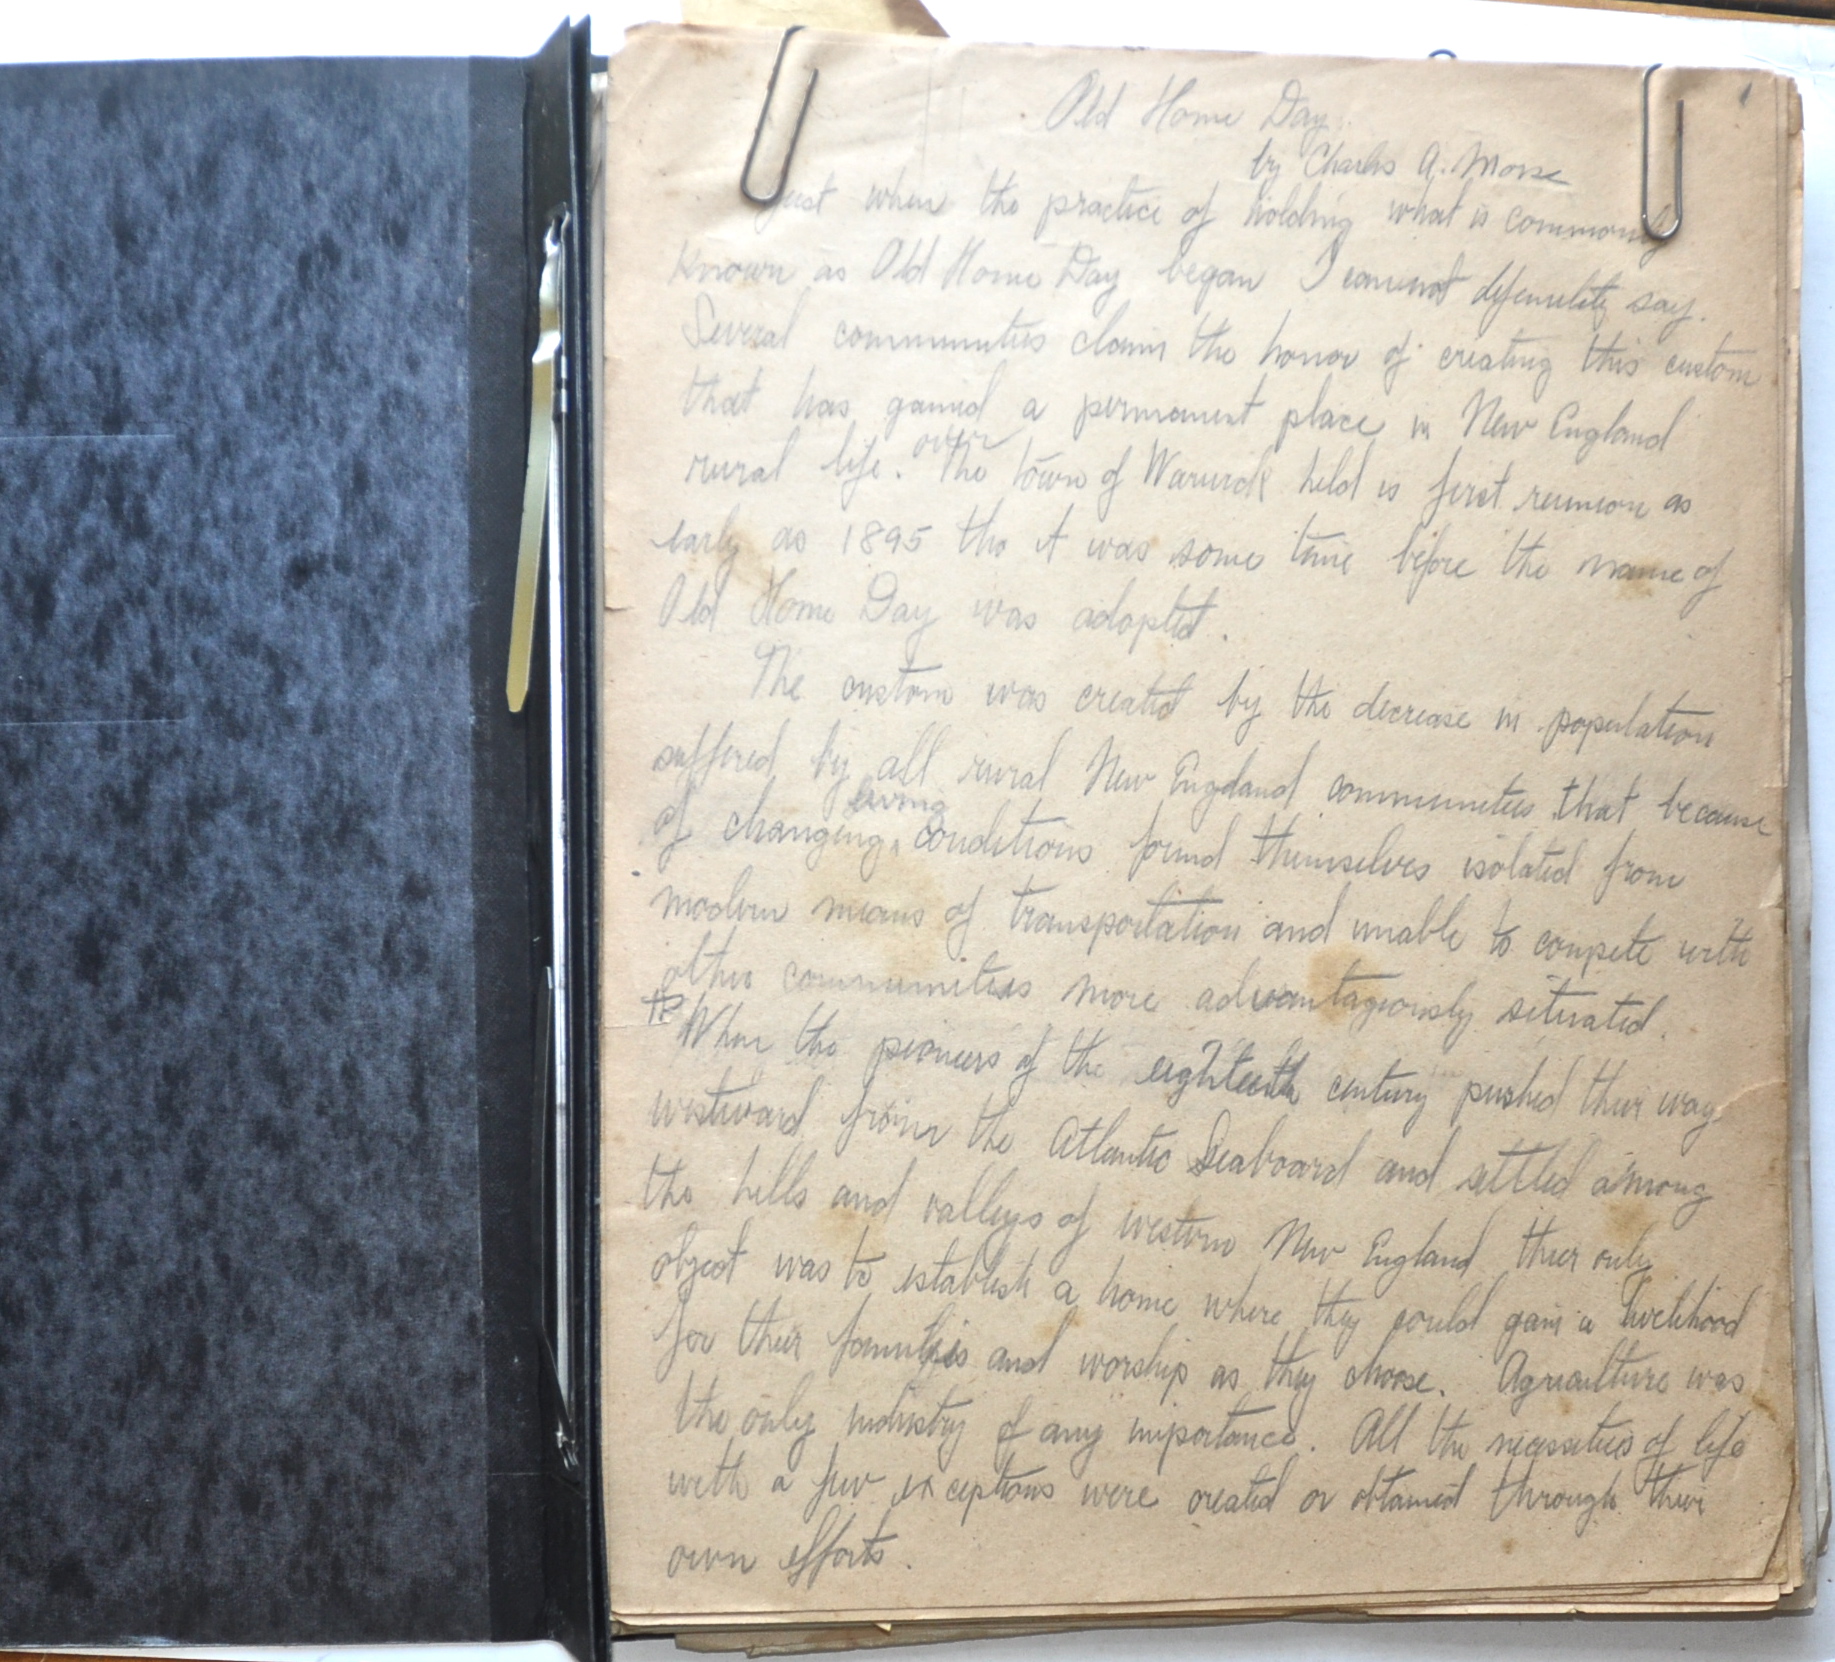 Old Home Day.
by Charles A. Morse
Just when the practice of holding what is commonly
known as Old Home Day began I cannot definitely say.
Several communities claim the honor of creating this custom
that has gained a permanent place in New England
rural life. The town of Warwick held is first reunion as
early as 1895 tho it was some time before the name of
Old Home Day was adopted.
The custom was created by the decrease in population
suffered by all rural New England communities that because
living
of changing conditions found themselves isolated from
modern means of transportation and unable to compete with
other communities more advantageously situated.
When the pioneers of the eighteeth century pushed their way
westward from the Atlantic Seaboard and settled among
the hills and valleys of western New England their only
object was to establish a home where they could gain a livelihood
for their families and worship as they choose. Agriculture was
the only industry of any importance. All the necessities of life
with a few exceptions were created or obtained through their
own efforts.